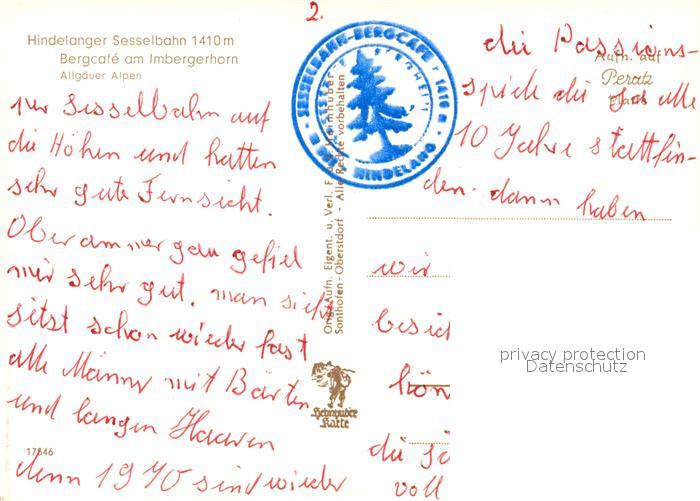 2.
Hindelanger Sesselbahn 1410 m
Bergcafé am Imbergerhorn
Allgäuer Alpen
zur Sesselbahn auf
die Höhen und hatten
sehr gute Fernsicht.
Oberammergau gefiel
mir sehr gut. man sieht
jetzt schon wieder fast
alle Männer mit Bärten
und langen Haaren
denn 1970 sind wieder
17546
SESSELBAHN-BERGCAFE 1410 m
HINDELANG
Orig. Aufn. Eigent. u. Verl. Heimhuber
Sonthofen-Oberstdorf - Alle Rechte vorbehalten
Heimhuber
Karte
Aufn. auf
Perutz
die Passions-
spiele die ja alle
10 Jahre stattfin-
den. dann haben
wir
besich
kön
die
voll
privacy protection
Datenschutz